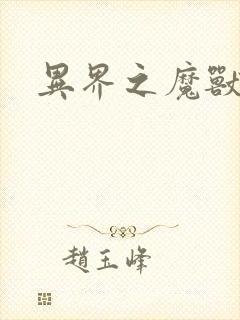 異界之魔獸
趙玉峰